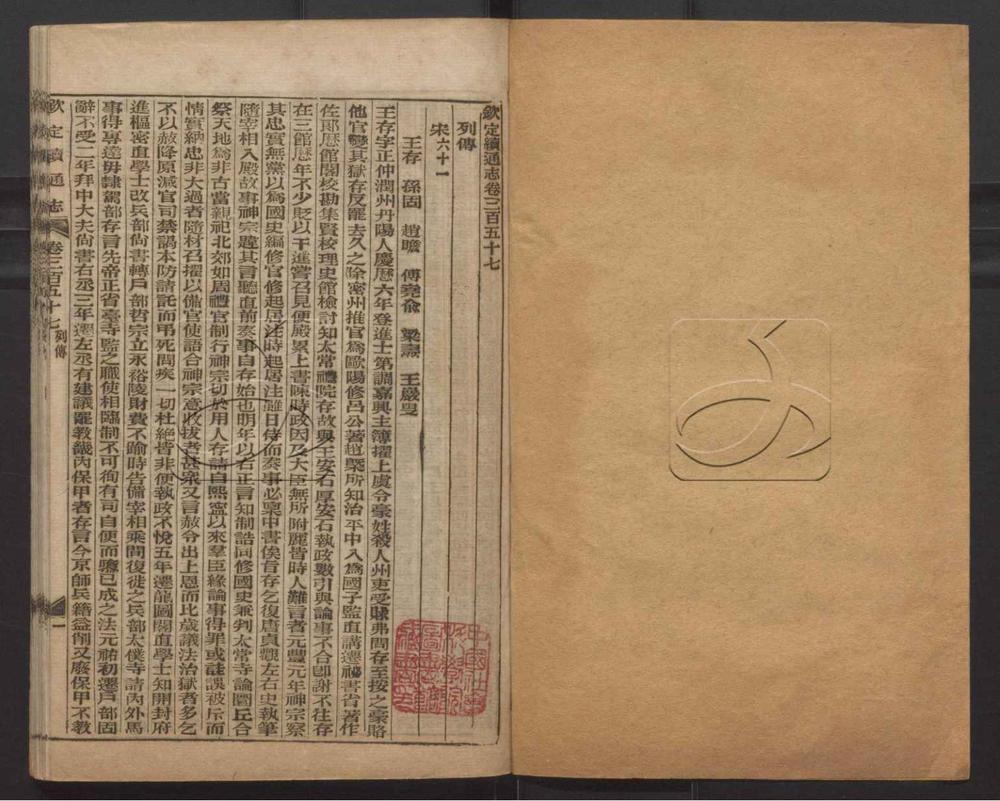 欽定續通志卷三百五十七
列傳
宋六十一
王存 孫固 趙瞻 傅堯俞 梁燾 王巖叟
王存字正仲潤州丹陽人慶曆六年登進士第調嘉興主簿擢上虞令豪姓殺人州吏受賕弗問存至按之豪賂
他官變其獄存反罷去久之除密州推官爲歐陽修呂公著趙槩所知治平中入爲國子監直講遷祕書省著作
佐郎歷館閣校勘集賢校理史館檢討知太常禮院存故與王安石厚安石執政數引與論事不合卽謝不往存
在三館歷年不少貶以干進嘗召見便殿累上書陳時政因及大臣無所附麗皆時人難言者元豐元年神宗察
其忠實無黨以爲國史編修官修起居注時起居注雖日侍而奏事必稟中書俟旨存乞復唐貞觀左右史執筆
隨宰相入殿故事神宗韙其言聽直前奏事自存始也明年以右正言知制誥同修國史兼判太常寺論圜丘合
祭天地爲非古當親祀北郊如周禮官制行神宗切於用人存請自熙寧以來羣臣緣論事得罪或詿誤被斥而
情實納忠非大過者隨材召擢以備官使語合神宗意收拔者甚衆又言赦令出上恩而比歲議法治獄者多乞
不以赦降原減官司禁謁本防請託而弔死問疾一切杜絶皆非便執政不悅五年遷龍圖閣直學士知開封府
進樞密直學士改兵部尚書轉戶部哲宗立永裕陵財費不踰時告備宰相乘間復徙之兵部太僕寺請內外馬
事得專達毋隸駕部存言先帝正省臺寺監之職使相臨制不可徇有司自便而隳已成之法元祐初還戶部固
辭不受二年拜中大夫尚書右丞三年遷左丞有建議罷教畿內保甲者存言今京師兵籍益削又廢保甲不教
欽定續通志 卷三百五十七 列傳 一